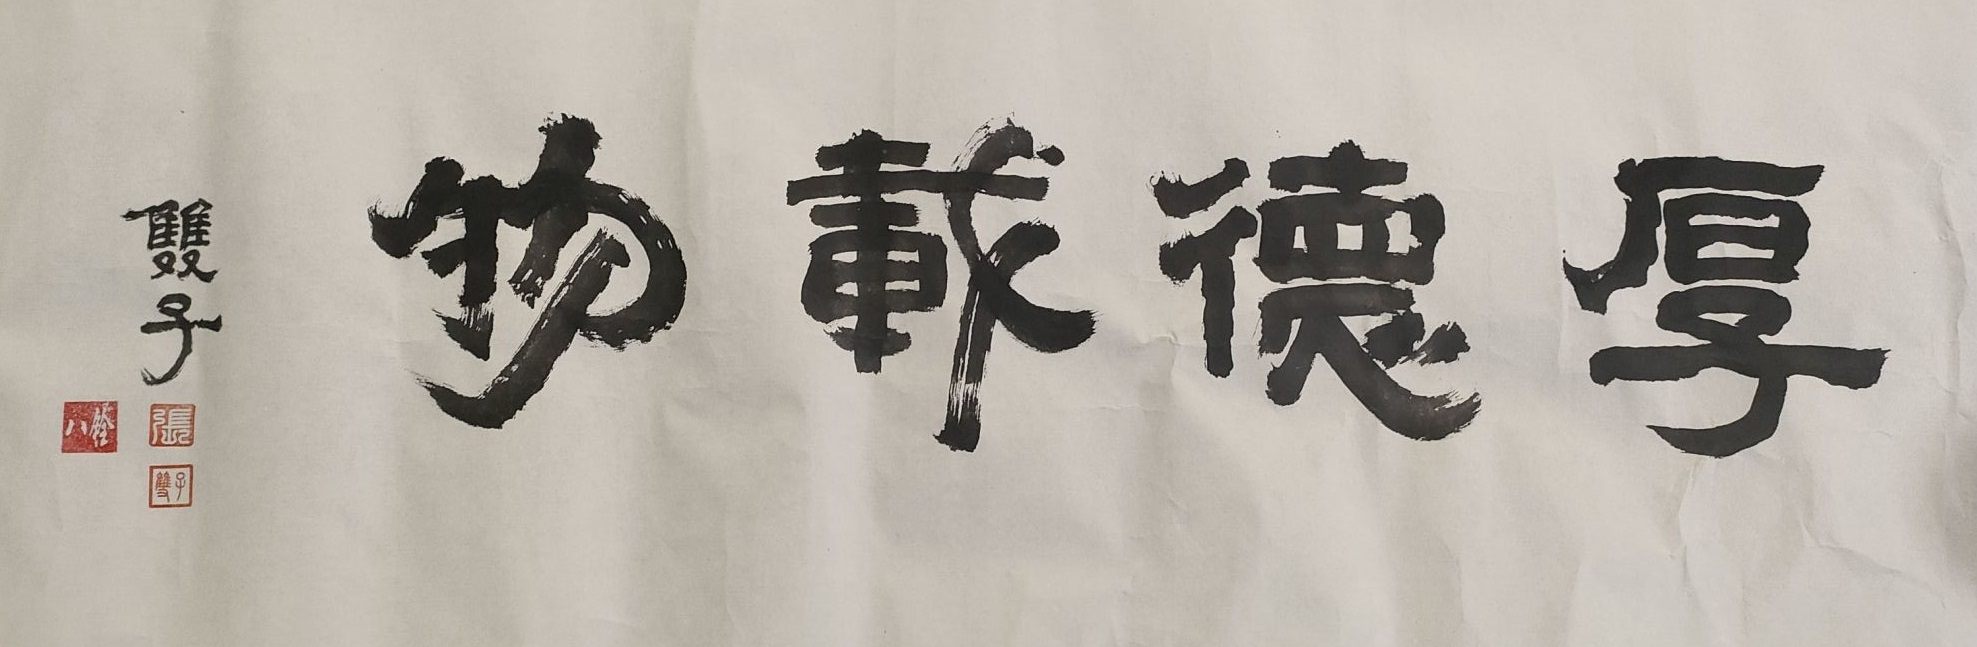 厚德載物
雙子
張
雙子